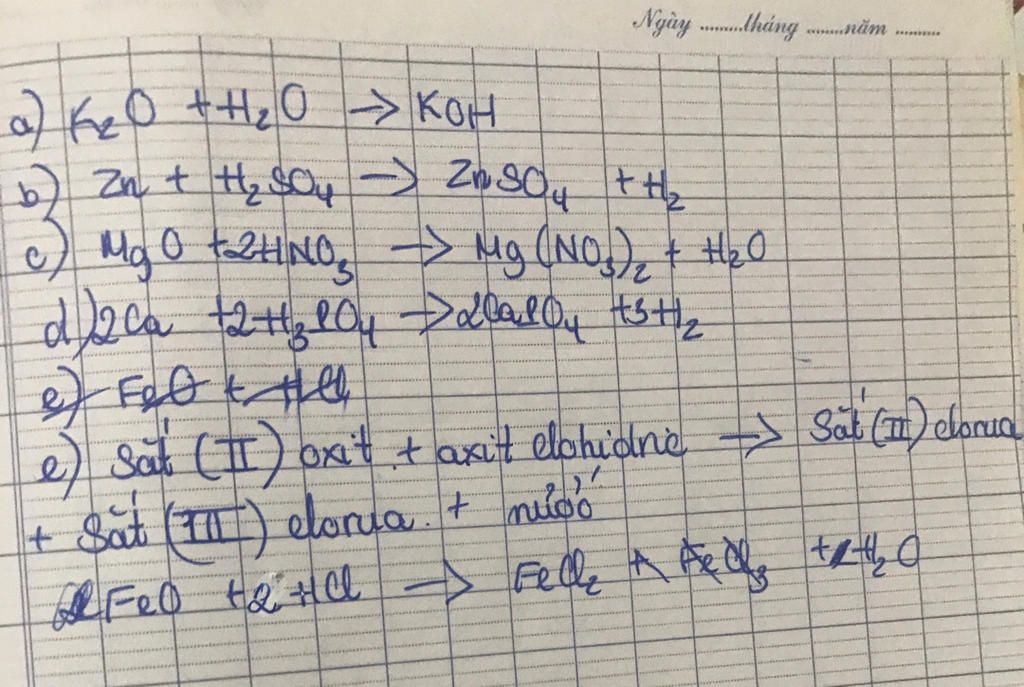 Ngày .........tháng ........năm ..........
a) K2O + H2O → KOH
b) Zn + H2SO4 → ZnSO4 + H2
c) MgO + 2HNO3 → Mg(NO3)2 + H2O
d) 2Ca + 2H3PO4 → 2CaPO4 + 3H2
e) FeO + HCl
e) Sắt (II) oxit + axit clohidric → Sắt (II) clorua
+ Sắt (III) clorua. + nước
FeO + 2HCl → FeCl2 + FeCl3 + H2O